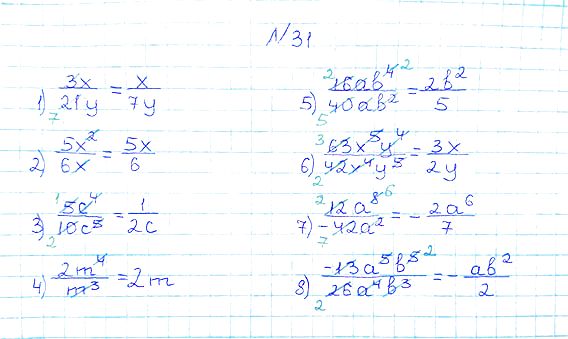 N 31
1) 3x/21y = x/7y
7
2) 5x²/6x = 5x/6
3) 5c⁴/10c⁵ = 1/2c
1
2
4) 2m⁴/m³ = 2m
5) 16ab⁴/40ab² = 2b²/5
2 2
5
6) 63x⁵y⁴/42x⁴y⁵ = 3x/2y
3
2
7) 12a⁸/-42a² = - 2a⁶/7
2 6
7
8) -13a⁵b⁵/26a⁴b³ = - ab²/2
2
2